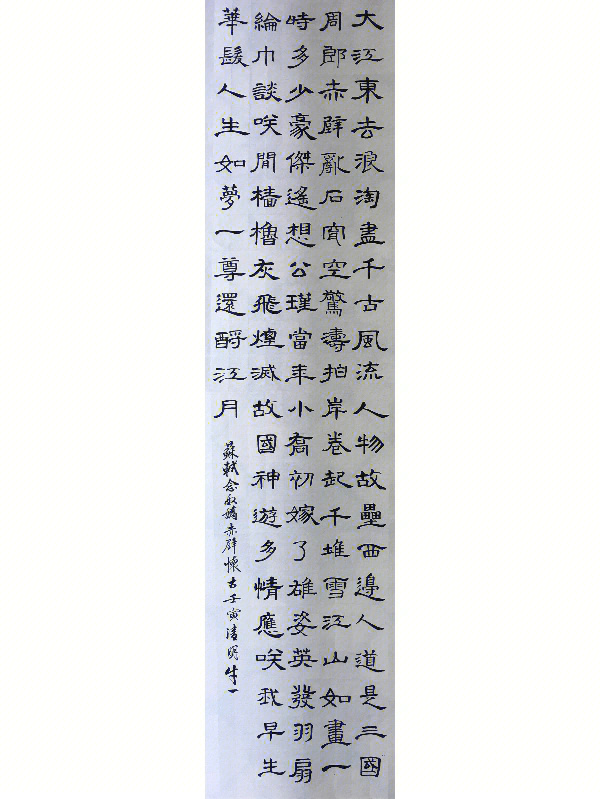 大江東去浪淘盡千古風流人物故壘西邊人道是三國
周郎赤壁亂石穿空驚濤拍岸卷起千堆雪江山如畫一
時多少豪傑遙想公瑾當年小喬初嫁了雄姿英發羽扇
綸巾談咲間檣櫓灰飛煙滅故國神遊多情應咲我早生
華髮人生如夢一尊還酹江月
蘇軾念奴嬌赤壁懷古壬寅清明牛一